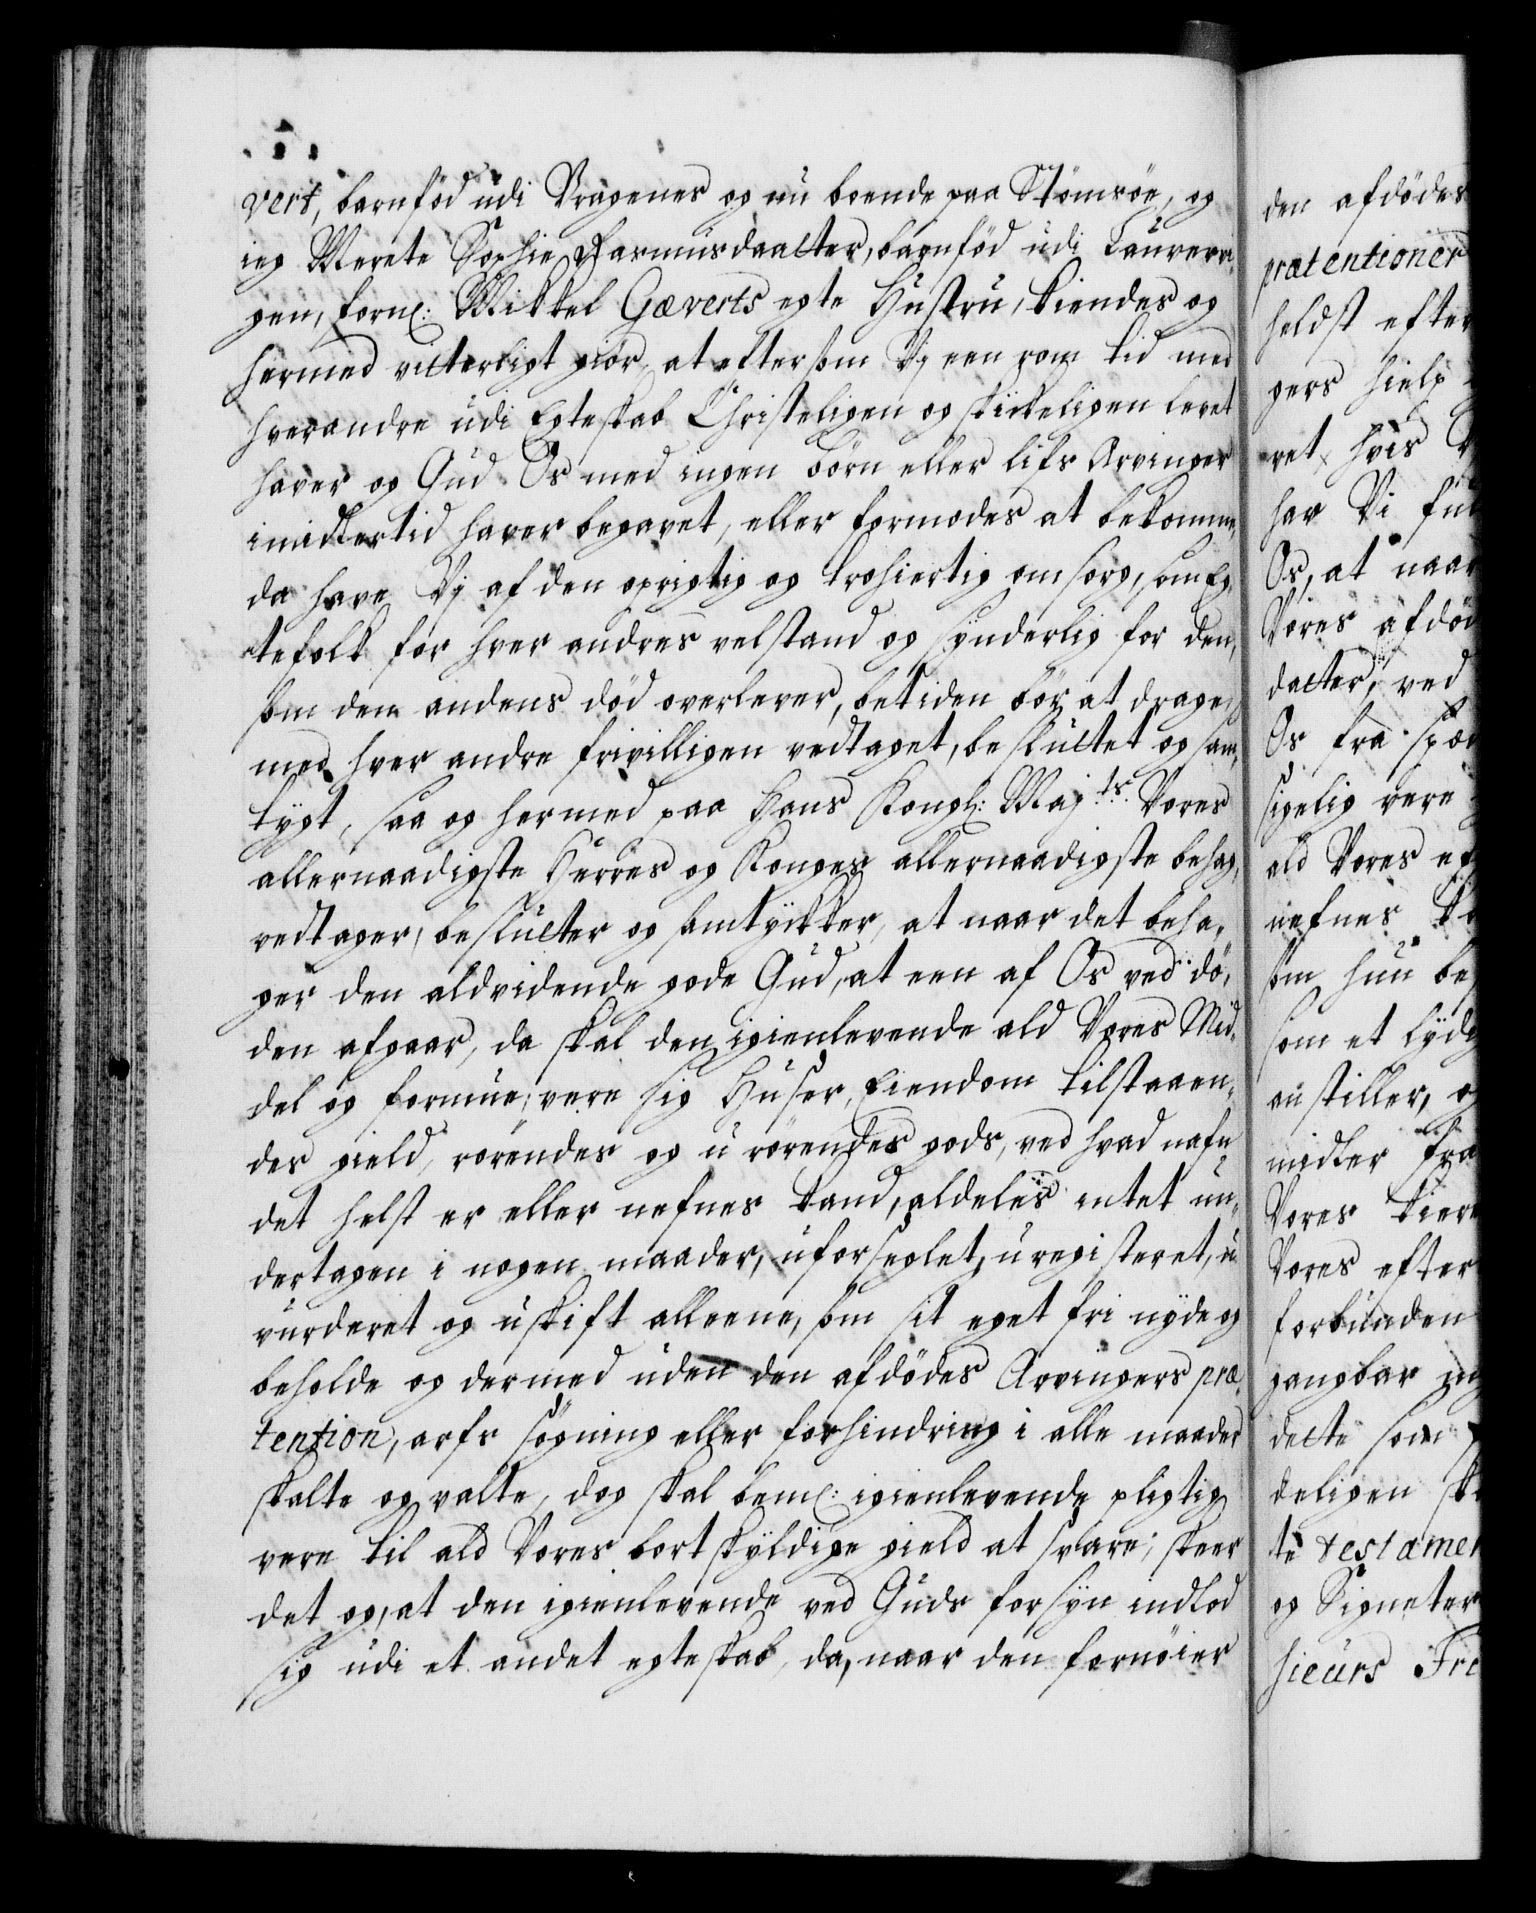 vert, barnfød udi Bragenes og nu boende paa Strømsöe, og
ieg Merete Sophie Rasmusdaatter, barnfød udi Laurvi¬
gen, forn: Mikkel Gæverts egte Hustru, kiendes og
hermed vitterligt giør, at eftersom Vj een rom tid med
hverandre udi Egteskab Christeligen og skikkeligen levet
haver og Gud Os med ingen børn eller lifs Arvinger
imidlertid haver begavet, eller formodes at bekomme,
da have Vj af den oprigtig og trohiertig omsorg, som Eg¬
tefolk for hver andres velstand og synderlig for den,
som den andens død overlever, betiden bør at drage,
med hver andre frivilligen vedtaget, besluttet og sam¬
tygt, saa og hermed paa Hans Kongl: Maj.ts Vores
allernaadigste Herres og Konges allernaadigste behag,
vedtager, beslutter og samtykker, at naar det beha¬
ger den aldvidende gode Gud, at een af Os ved dø¬
den afgaar, da skal den igienlevende ald Vores Mid¬
del og formue, være sig Huser, Eiendom tilstaaen¬
des gield, rørendes og u rørendes gods, ved hvad nafn
det helst er eller nefnes kand, aldeles intet un¬
dertagen i nogen maader, uforseglet, uregisteret, u
vurderet og uskift alleene, som sit eget fri nyde og
beholde og dermed uden den afdødes Arvingers præ¬
tention, arfs søgning eller forhindring i alle maader
skalte og valte, dog skal bem: igienlevende pligtig
være til ald Vores bortskyldige gield at svare; skeer
det og, at den igienlevende ved Guds forsyn indlod
sig udi et andet egteskab, da, naar den fornøier
den afdødes
prætentioner
heldst efter
gers hielp
ret, hvis
har Vi
Os, at naar
Vores afdød
datter, ved
Os fra
sigelig være
ald Vores
nefnes
som hun
som et
anstiller,
midler fra
Vores kiere
Vores efter
forbunden
gangbar
dette som
deligen
te testamen
og Signeter
sieurs Fre